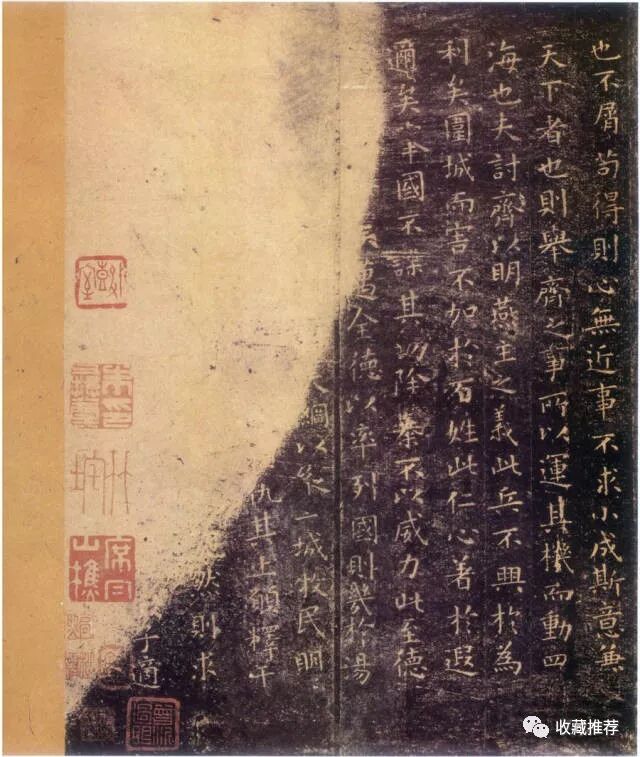 也不屑苟得則心無近事不求小成斯意兼
天下者也則舉齊之事所以運其機而動四
海也夫討齊以明燕主之義此兵不興於為
利矣圍城而害不加於百姓此仁心著於遐
邇矣舉國不謀其功除暴不以威力此至德
邁全德以率列國則幾於湯
綱以縱二城牧民明
仇其上願釋干
則求
子適
收藏推荐